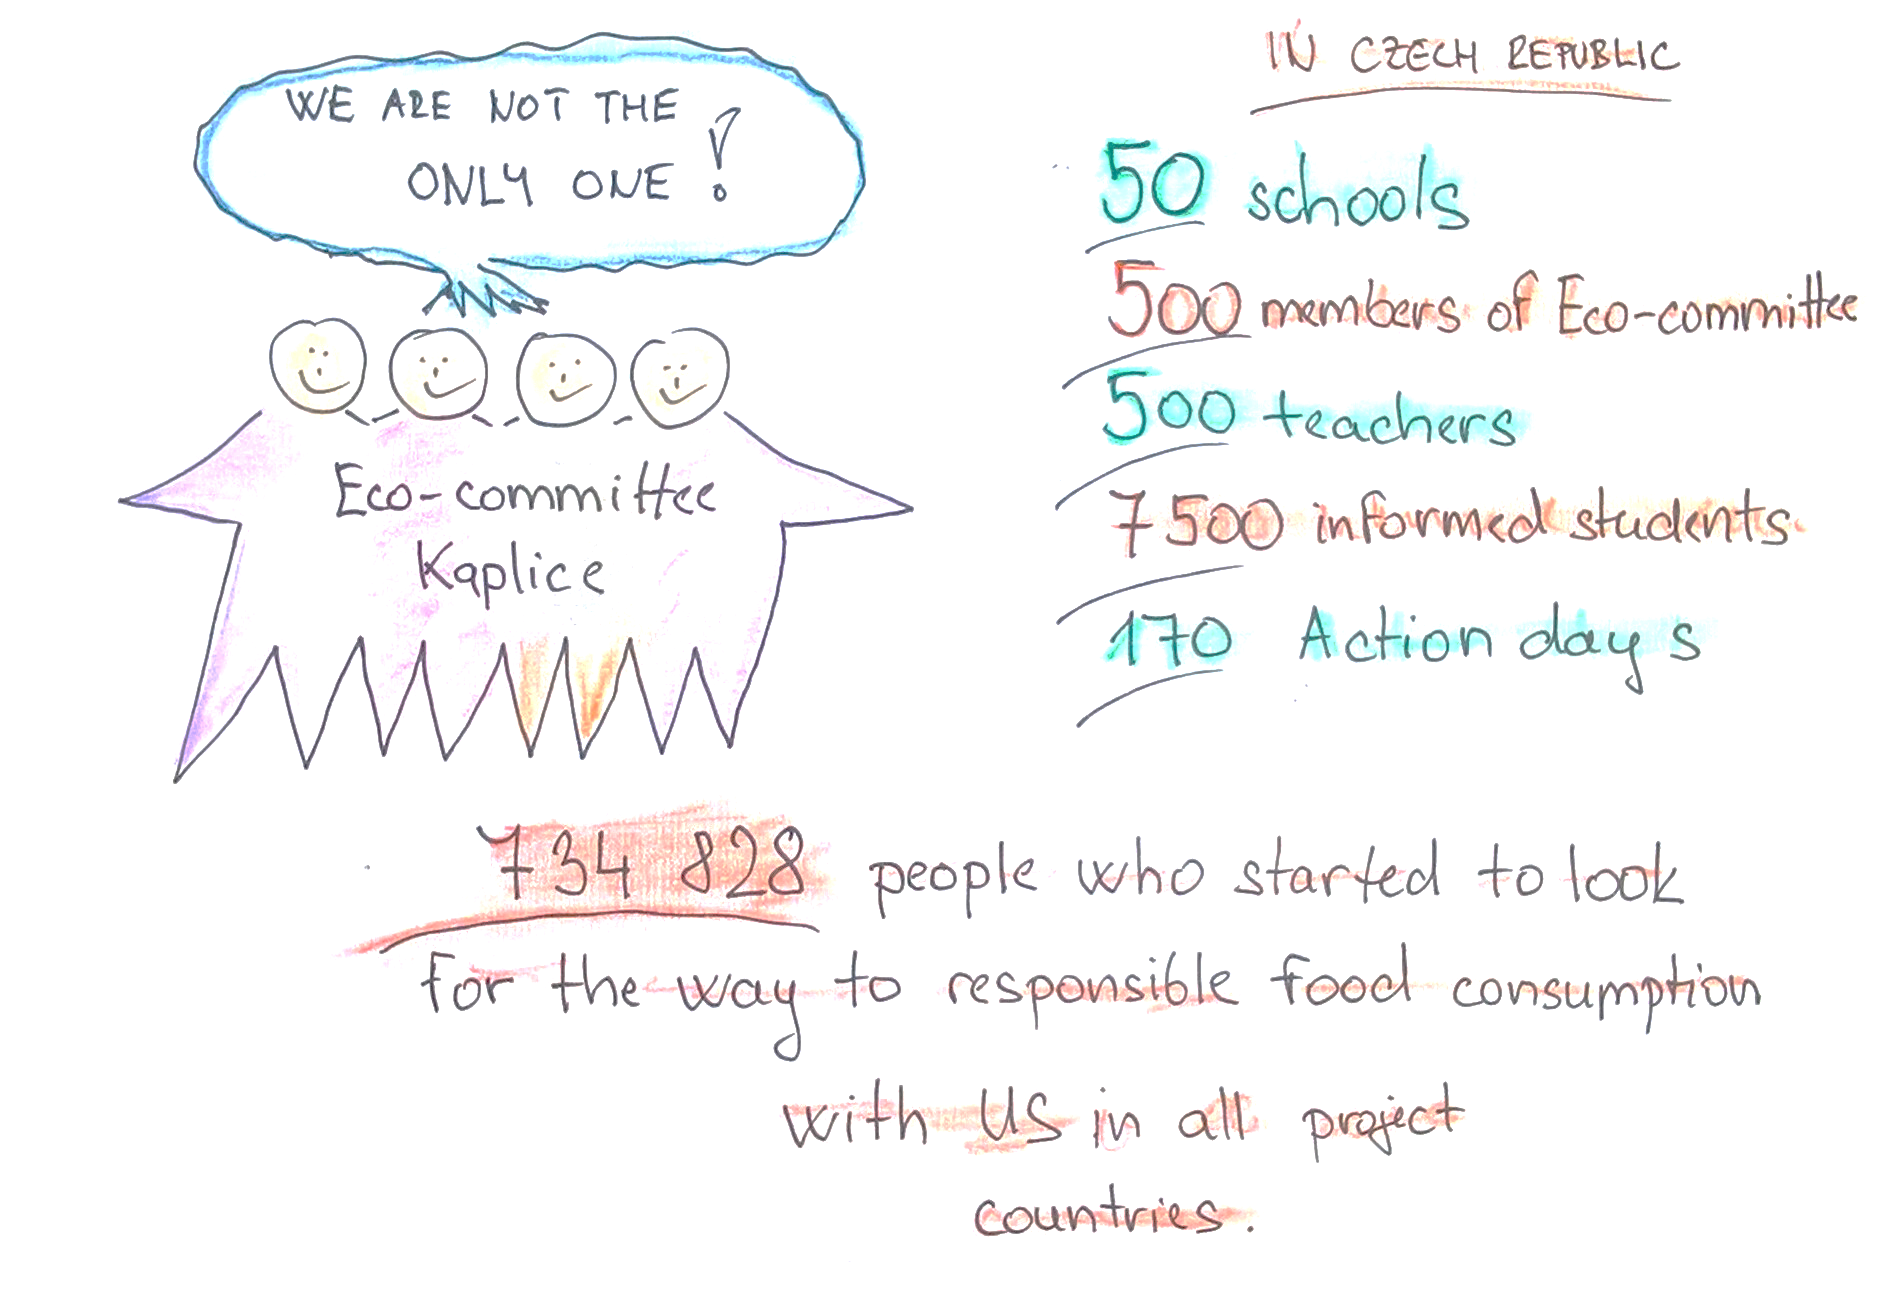 WE ARE NOT THE
ONLY ONE!
Eco-committee
Kaplice
IN CZECH REPUBLIC
50 schools
500 members of Eco-committee
500 teachers
7 500 informed students
170 Action days
734 828 people who started to look
for the way to responsible food consumption
with US in all project
countries.